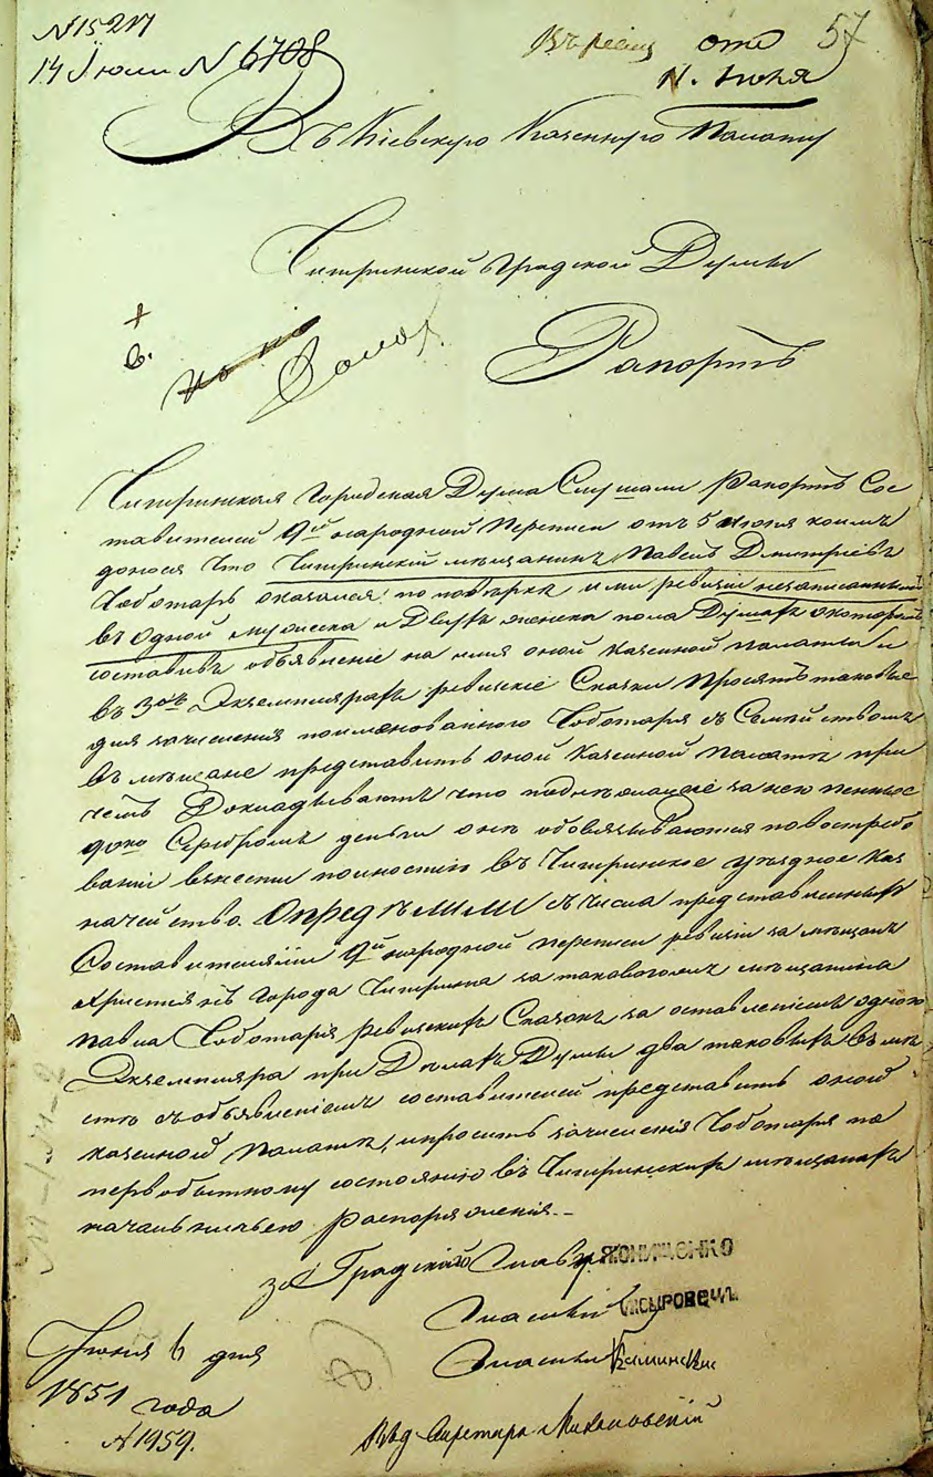 N 15217
14 Июня N 6708
57
Въ Кіевскую Казенную Палату
Чигринской Градской Думы
Рапортъ
Чигринская Городская Дума Слушали Рапортъ Сос
тавителей 9й народной переписи отъ 5 Июня коимъ
донося что Чигринскій мѣщанинъ Павелъ Дмитріевъ
Чоботарь оказался по повѣркѣ ими ревизіи незаписаннымъ
въ одной мужеска и Двухъ женска пола Душахъ о которыхъ
составивъ объявленіе на имя оной казенной палаты и
въ 3хъ Экземплярахъ ревизскіе Сказки Просятъ таковые
для зачисленія поименованного Чоботаря съ Семействомъ
въ мѣщане представить оной Казенной Палатѣ при
чемъ Докладываютъ что подлежащіе за нею
Серебромъ деньги онъ обовязывается по востребо
ваніи взнести полностію въ Чигринское уѣздное Каз
начейство. Опредѣлили съ числа представленныхъ
Составителями 9й народной переписи ревизіи за мѣщанъ
Христіянъ Города Чигрина за таковогомъ мѣщанина
Павла Чоботаря ревизскихъ Сказокъ за оставленіемъ одного
Экземпляра при Дѣлахъ Думы два таковыхъ вмѣ
стѣ съ объявленіемъ составителей представить оной
казенной Палатѣ, и просить зачисленія Чоботаря по
первобытному состоянію въ Чигринскихъ мѣщанахъ
начальничью Распоряженія.-
за Градского Главу ЯКОНИЩЕНКО
Гласный СЫРОВЕЦЪ
Гласный Каминскій
Июня 6 дня
1851 года
N 1959.
Секретарь Михаловскій